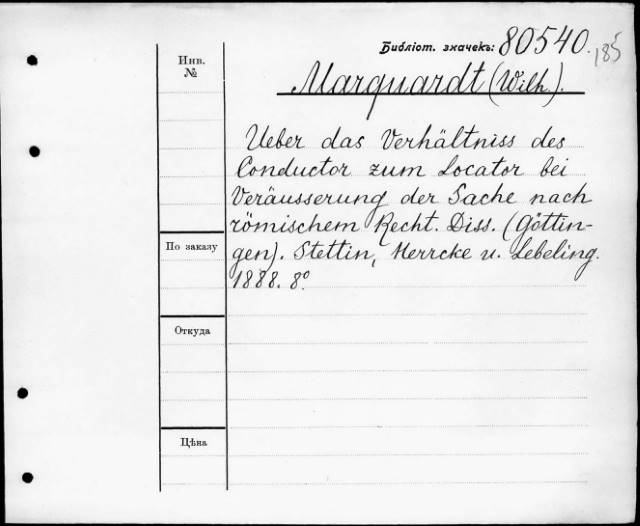 Библіот. значекъ: 80540. 185
Инв. №
Marquardt (Wilh.).
Ueber das Verhältniss des
Conductor zum Locator bei
Veräusserung der Sache nach
römischem Recht. Diss. (Göttin-
gen). Stettin, Herrcke u. Lebeling.
1888. 8°
По заказу
Откуда
Цѣна